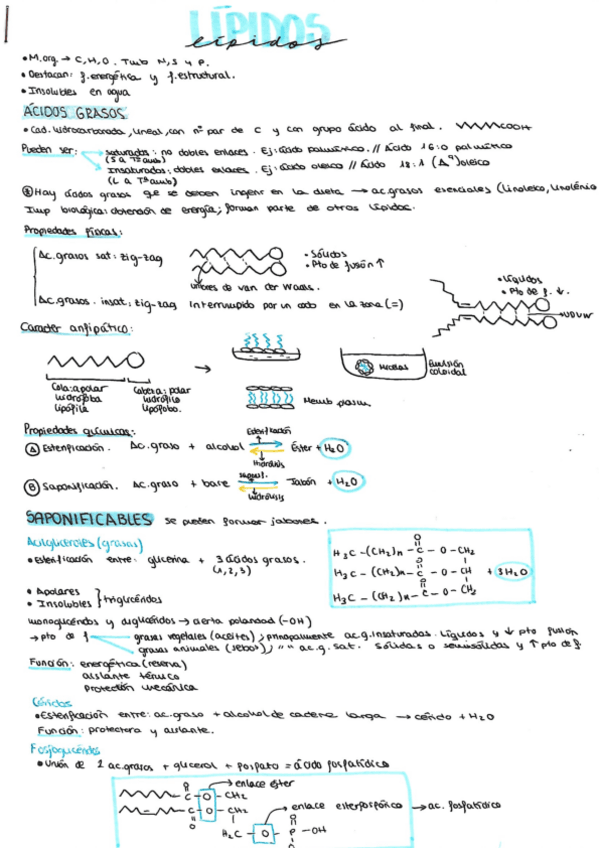 LÍPIDOS
lípidos
• M.org → C, H, O. Tmb N, S y P.
• Destacan: f. energética y f. estructural.
• Insolubles en agua
ÁCIDOS GRASOS
• Cad. hidrocarbonada, lineal, con nº par de C y con grupo ácido al final. COOH
Pueden ser: saturados: no dobles enlaces. Ej: ácido palmítico // Ácido 16:0 palmítico
(S a Tª amb)
Insaturados: dobles enlaces. Ej: ácido oleico // Ácido 18:1 (Δ⁹) oleico
(L a Tª amb)
Hay ácidos grasos que se deben ingerir en la dieta → ac. grasos esenciales (linoleico, linolénio
Imp biológica: obtención de energía; forman parte de otros lípidos.
Propiedades físicas:
Ac. grasos sat: zig-zag
• Sólidos
• Pto de fusión ↑
uniones de van der Waals.
• Líquidos
• Pto de f. ↓.
Ac. grasos. insat: zig-zag interrumpido por un codo en la zona (=)
UDVW
Caracter anfipático:
Cola: apolar
hidrófoba
lipófila
Cabeza: polar
hidrófila
lipófoba.
Micelas
Emulsión
coloidal
Memb plasm
Propiedades químicas:
A Esterificación. Ac. graso + alcohol Esterificación Hidrólisis Éster + H₂O
B Saponificación. Ac. graso + base Hidrólisis Jabón + H₂O
SAPONIFICABLES se pueden formar jabones.
Acilglicéridos (grasas)
• Esterificación entre: glicerina + 3 ácidos grasos.
(1, 2, 3)
O
H₃C - (CH₂)n - C - O - CH₂
O
H₃C - (CH₂)n - C - O - CH + 3H₂O
O
H₃C - (CH₂)n - C - O - CH₂
• Apolares
• Insolubles } triglicéridos
monoglicéridos y diglicéridos → cierta polaridad (-OH)
→ pto de f grasas vegetales (aceites); principalmente ac.g. insaturados. Líquidos y ↓ pto fusión
grasas animales (sebos); " " ac. g. sat. sólidas o semisólidas y ↑ pto de f.
Función: energética (reserva)
aislante térmico
protección mecánica
Céridos
• Esterificación entre: ac. graso + alcohol de cadena larga → cérido + H₂O
Función: protectora y aislante.
Fosfoglicéridos
• Unión de 2 ac. grasos + glicerol + fosfato = ácido fosfatídico
O → enlace éster
C - O - CH₂
C - O - CH
O
→ enlace esterfosfórico → ac. fosfatídico
O
H₂C - O - P - OH
O